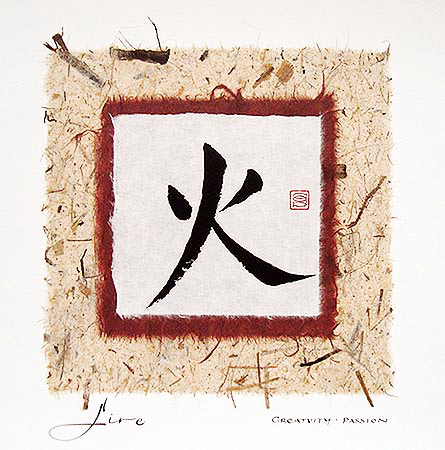 火
Fire
CREATVITY · PASSION